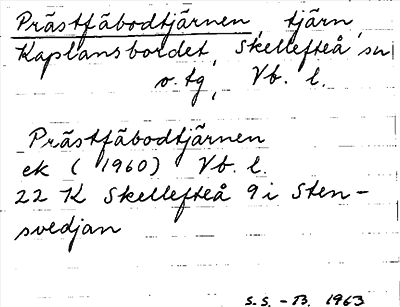 Prästfäbodtjärnen, tjärn,
Kaplansbordet, Skellefteå sn
o. tg, Vb. l.
Prästfäbodtjärnen
ek (1960) Vb. l.
22 K Skellefteå 9 i Sten-
svedjan
S.S. - B. 1963